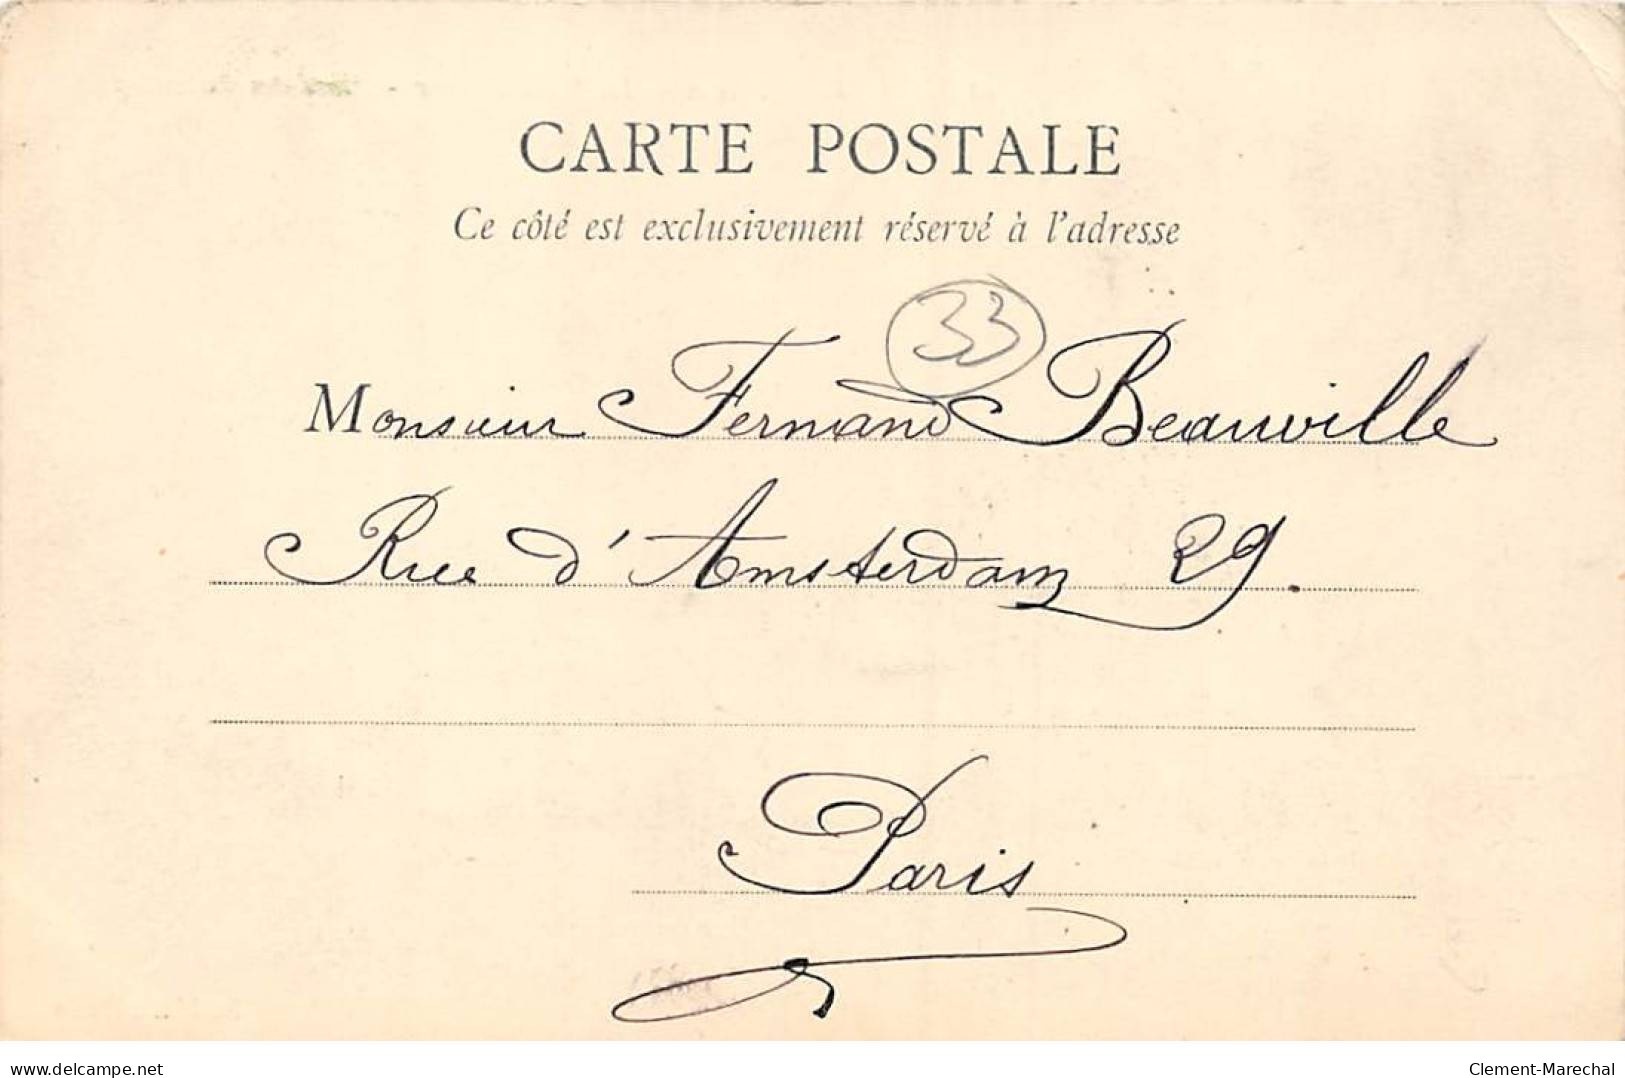 CARTE POSTALE
Ce côté est exclusivement réservé à l'adresse
33
Monsieur Fernand Beauville
Rue d'Amsterdam 29.
Paris
www.delcampe.net
Clement-Marechal